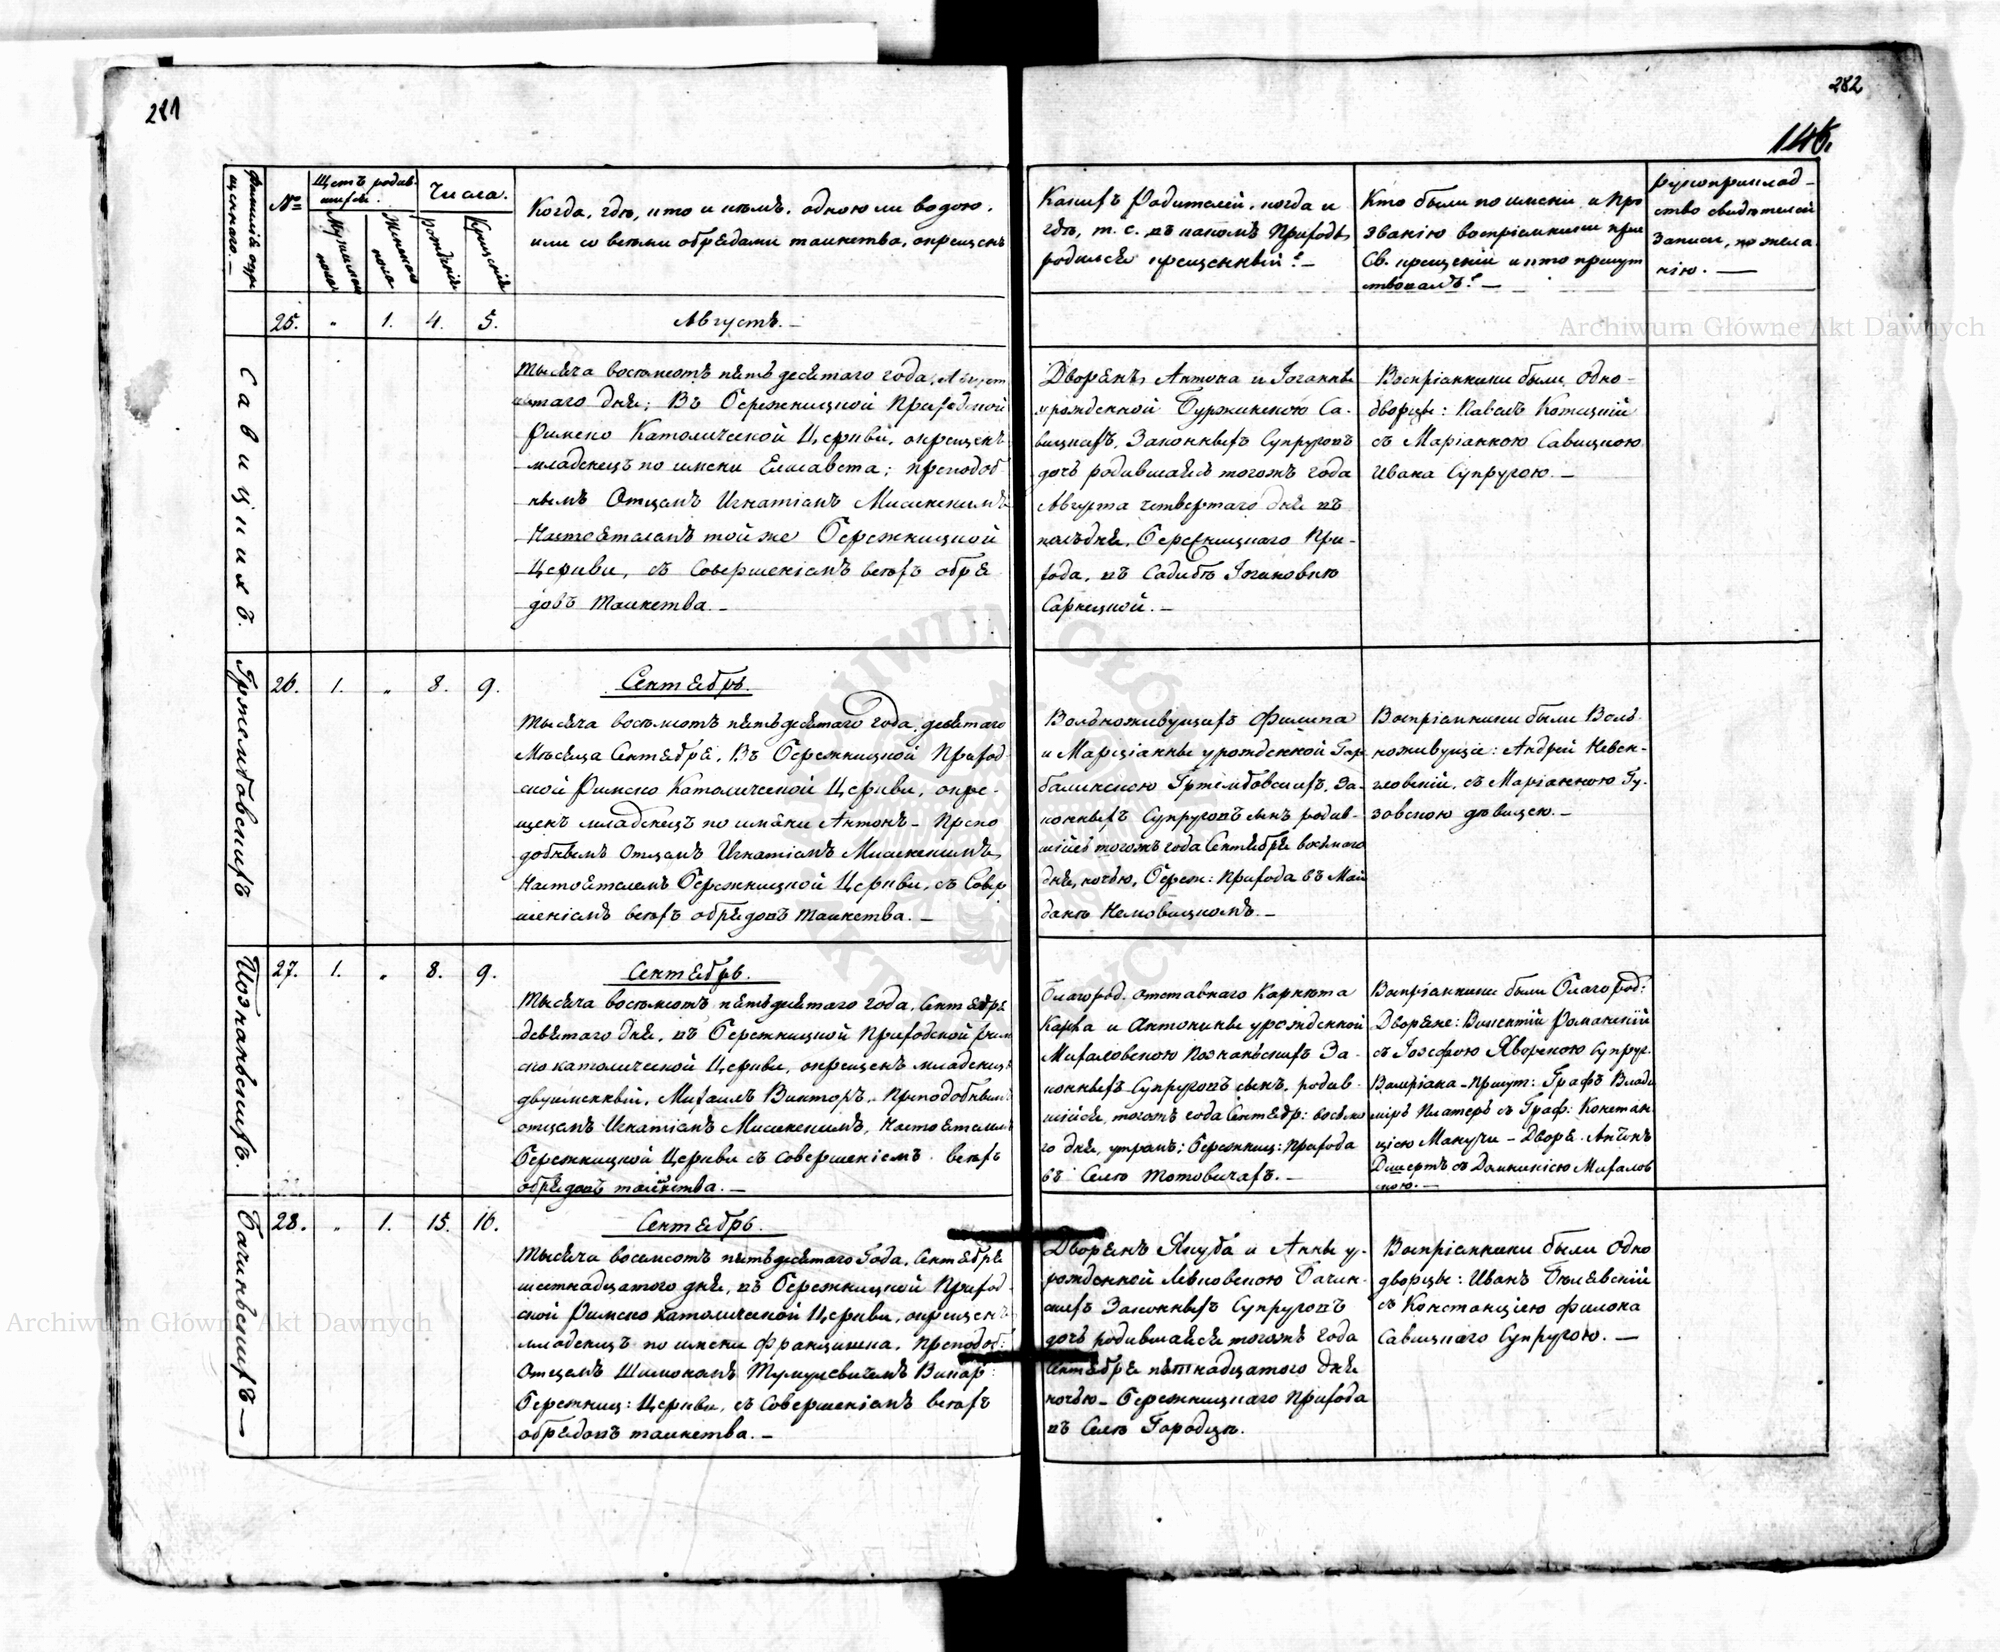 281
282
146.
Фамилія окре
щеннаго. —
№
Щетъ родив-
шихся.
Мужескаго
пола
Женскаго
пола
Числа.
Рожденія
Крещенія
Когда, гдѣ, кто и кѣмъ, одною ли водою,
или со всѣми обрядами таинства, окрещенъ
Какихъ Родителей, когда и
гдѣ, т. е. въ какомъ Приходѣ
родился крещенный? —
Кто были по имени и Про
званію воспріемники при
Св. крещеніи и кто присут
ствовалъ? —
Рукоприклад-
ство свидѣтелей
записи, по жела
нію. —
25. „ 1. 4. 5.
Августъ. —
Савицкихъ.
Тысяча восемсотъ пятьдесятаго года, Август
пятаго дня; Въ Бережницкой Приходской
Римско Католической Церкви, окрещенъ
младенецъ по имени Елисавета; преподоб
нымъ Отцемъ Игнатіемъ Мисинскимъ
Настоятелемъ той же Бережницкой
Церкви, съ совершеніемъ всѣхъ обря
довъ Таинства. —
Дворянъ Антона и Іоганны
урожденной Буржинскою Са-
вицкихъ, Законныхъ Супруговъ
дочь родившаяся тогожъ года
Августа четвертаго дня въ
полъдня, Бережницкаго При-
хода, въ Садибѣ
Сарнецкой. —
Воспріемники были Одно-
дворцы: Павелъ Котицкій
съ Маріанною Савицкою
Ивана Супругою. —
26. 1. „ 8. 9.
Сентябрь.
Гржембовскихъ
Тысяча восемсотъ пятьдесятаго года, девятаго
Мѣсяца Сентября, Въ Бережницкой Приход-
ской Римско Католической Церкви, окре-
щенъ младенецъ по имени Антонъ — Препо
добнымъ Отцемъ Игнатіемъ Мисинскимъ,
Настоятелемъ Бережницкой Церкви, съ Совер
шеніемъ всѣхъ обрядовъ Таинства. —
Вольноживущихъ Филипа
и Марціанны урожденной Гор
балинскою Гржембовскихъ, За-
конныхъ Супруговъ сынъ родив-
шійся тогожъ года Сентября восьмаго
дня, ночью, Береж: Прихода въ Май
данѣ Немовицкомъ. —
Воспріемники были Воль-
ноживущіе: Андрей Невен-
гловскій, съ Маріанною Гу-
зовскою дѣвицею. —
27. 1. „ 8. 9.
Сентябрь.
Познаньскихъ.
Тысяча восемсотъ пятьдесятаго года, Сентября
девятаго дня, въ Бережницкой Приходской Рим
ско католической Церкви, окрещенъ младенецъ
двуименный, Михаилъ Викторъ, Преподобнымъ
отцемъ Игнатіемъ Мисинскимъ, Настоятелемъ
Бережницкой Церкви съ совершеніемъ всѣхъ
обрядовъ таинства. —
Благород. отставнаго Карнета
Карла и Антонины урожденной
Михаловскою Познаньскихъ За-
конныхъ Супруговъ сынъ, родив-
шійся, тогожъ года Сентяб: восьма
го дня, утромъ; Бережниц: Прихода
въ Селѣ Тотовичахъ. —
Воспріемники были Благород:
Дворяне: Викентій Романскій
съ Іозефою Яворскою Супруг.
— Присут: Графъ Влади
міръ Платеръ съ Граф: Констан
ціею Манучи — Дворя. Антонъ
съ Доминикіею Михалов
скою. —
28. „ 1. 15. 16.
Сентябрь.
Бачиньскихъ —
Тысяча восемсотъ пятьдесятаго Года, Сентября
шестнадцатаго дня, въ Бережницкой Приход-
ской Римско католической Церкви, окрещенъ
младенецъ по имени Францишка, Преподоб:
Отцемъ Шимономъ Викар:
Бережниц: Церкви, съ совершеніемъ всѣхъ
обрядовъ таинства. —
Дворянъ Якуба и Анны у-
рожденной Левковскою Бачин-
скихъ Законныхъ Супруговъ
дочь родившаяся тогожъ года
Сентября пятнадцатаго дня
ночью — Бережницкаго Прихода
въ Селѣ Городцѣ.
Воспріемники были Одно
дворцы: Иванъ Бялевскій
съ Констанціею Филона
Савицкаго Супругою. —
Archiwum Główne Akt Dawnych
Archiwum Główne Akt Dawnych